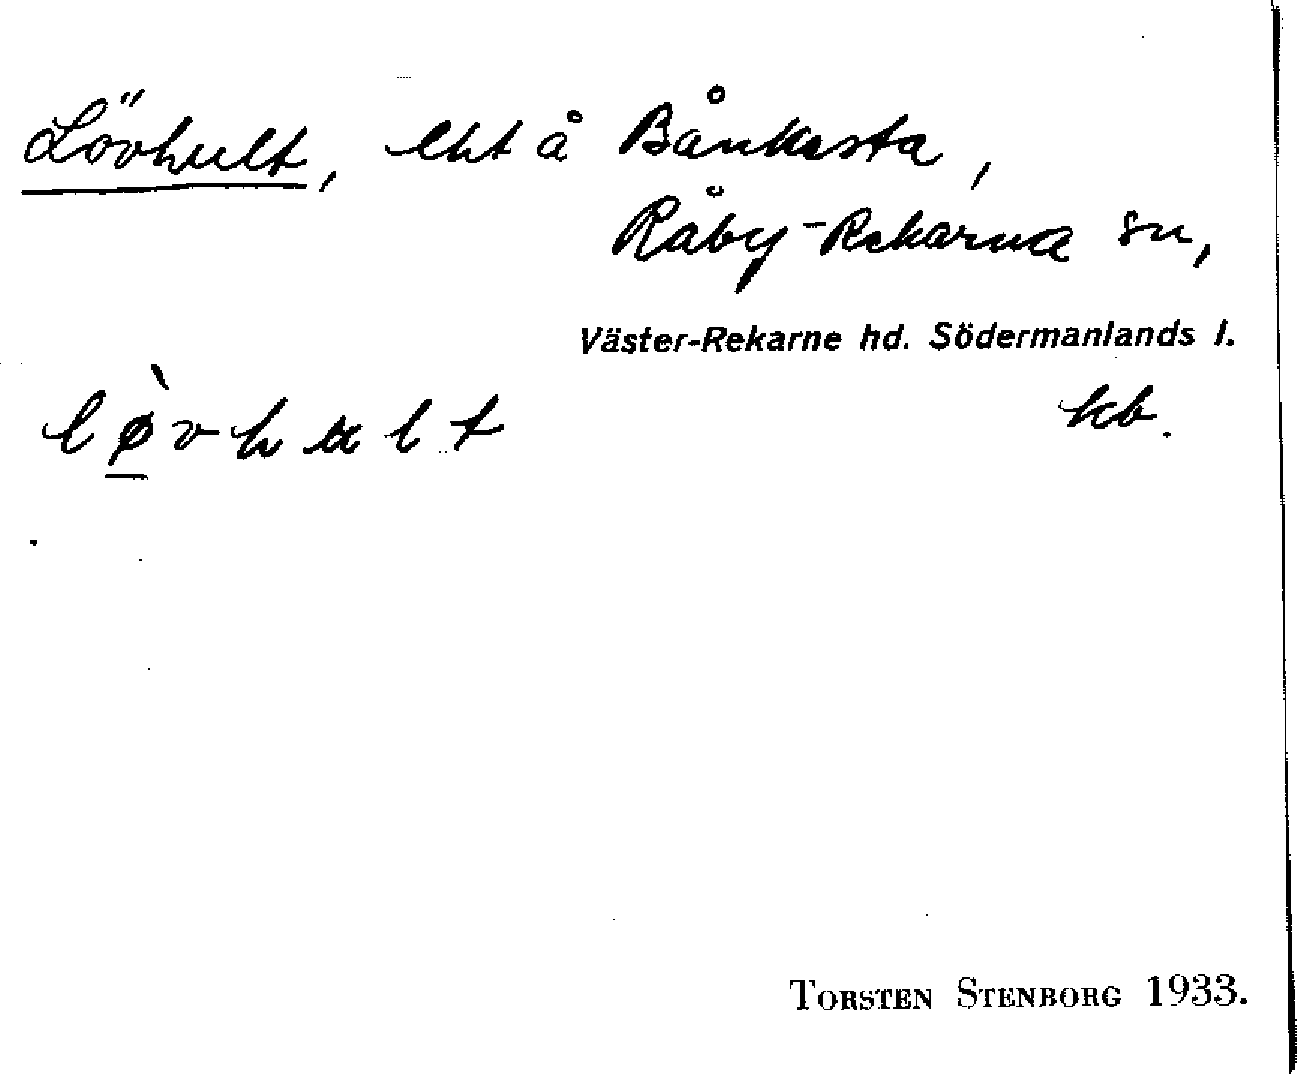 Lövhult, lht å Bånkesta,
Råby-Rekarna sn,
Väster-Rekarne hd. Södermanlands l.
lø̱̀vhult kb.
TORSTEN STENBORG 1933.